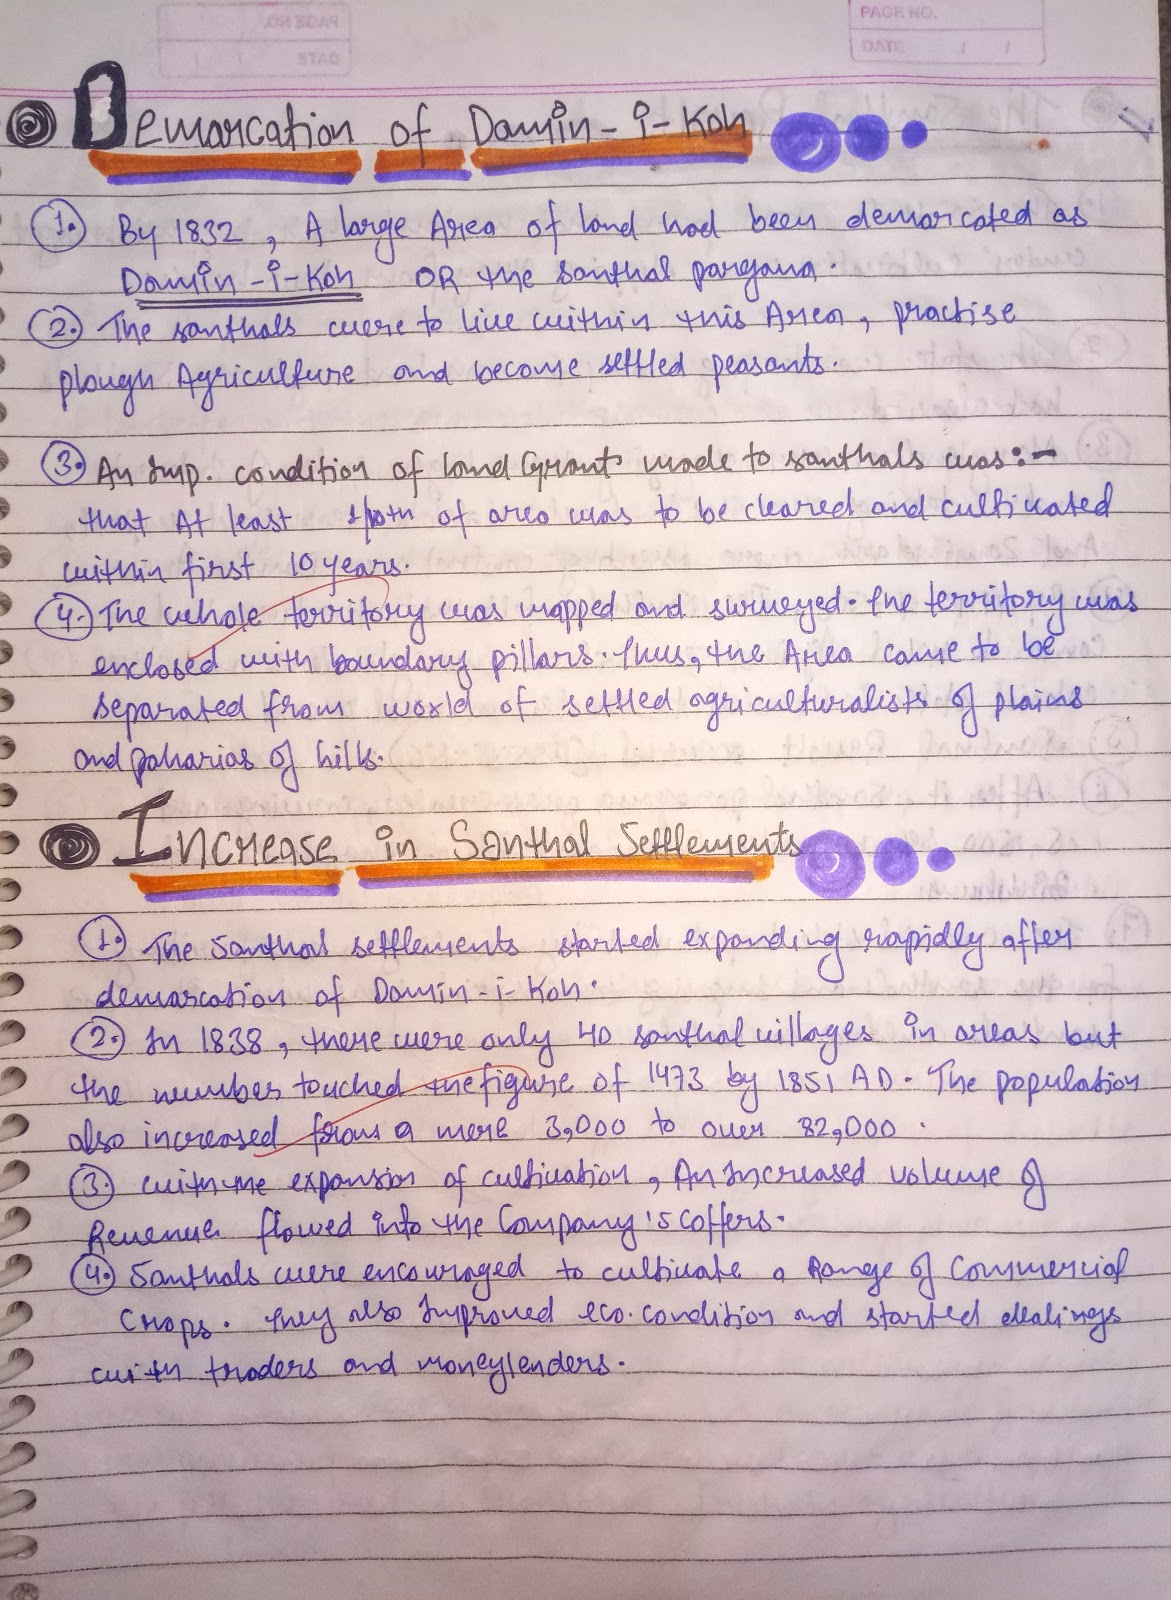 PAGE NO.
DATE / /
PAGE NO.
DATE / /
Demarcation of Damin-i-Koh
1. By 1832, A large Area of land had been demarcated as
Damin-i-Koh OR the Santhal pargana.
2. The santhals were to live within this Area, practise
plough Agriculture and become settled peasants.
3. An Imp. condition of land Grant made to santhals was:-
that At least 1/10th of area was to be cleared and cultivated
within first 10 years.
4. The whole territory was mapped and surveyed. The territory was
enclosed with boundary pillars. Thus, the Area came to be
separated from world of settled agriculturalists of plains
and paharias of hills.
Increase in Santhal Settlements
1. The Santhal settlements started expanding rapidly after
demarcation of Damin-i-Koh.
2. In 1838, there were only 40 santhal villages in areas but
the number touched the figure of 1473 by 1851 AD. The population
also increased from a mere 3,000 to over 82,000.
3. with the expansion of cultivation, An Increased volume of
Revenue flowed into the Company's coffers.
4. Santhals were encouraged to cultivate a Range of Commercial
crops. They also Improved eco. condition and started dealings
with traders and moneylenders.